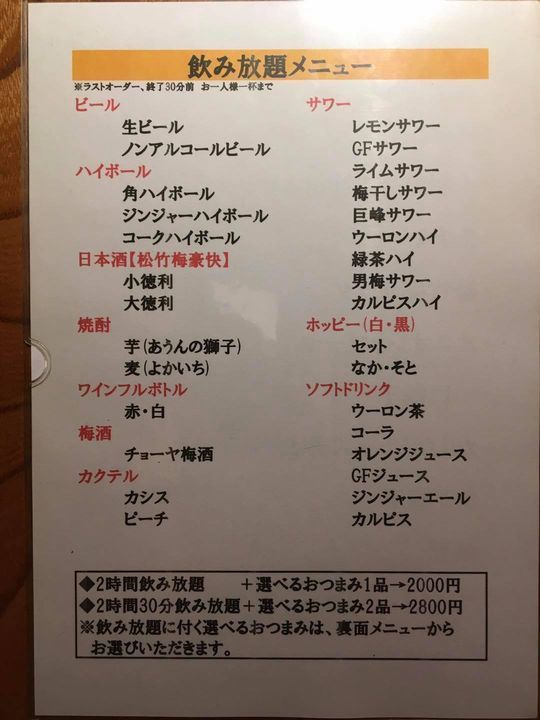 飲み放題メニュー
※ラストオーダー、終了30分前　お一人様一杯まで
ビール
生ビール
ノンアルコールビール
ハイボール
角ハイボール
ジンジャーハイボール
コークハイボール
日本酒【松竹梅豪快】
小徳利
大徳利
焼酎
芋(あうんの獅子)
麦(よかいち)
ワインフルボトル
赤・白
梅酒
チョーヤ梅酒
カクテル
カシス
ピーチ
サワー
レモンサワー
GFサワー
ライムサワー
梅干しサワー
巨峰サワー
ウーロンハイ
緑茶ハイ
男梅サワー
カルピスハイ
ホッピー(白・黒)
セット
なか・そと
ソフトドリンク
ウーロン茶
コーラ
オレンジジュース
GFジュース
ジンジャーエール
カルピス
◆2時間飲み放題　　＋選べるおつまみ1品→2000円
◆2時間30分飲み放題＋選べるおつまみ2品→2800円
※飲み放題に付く選べるおつまみは、裏面メニューから
お選びいただきます。